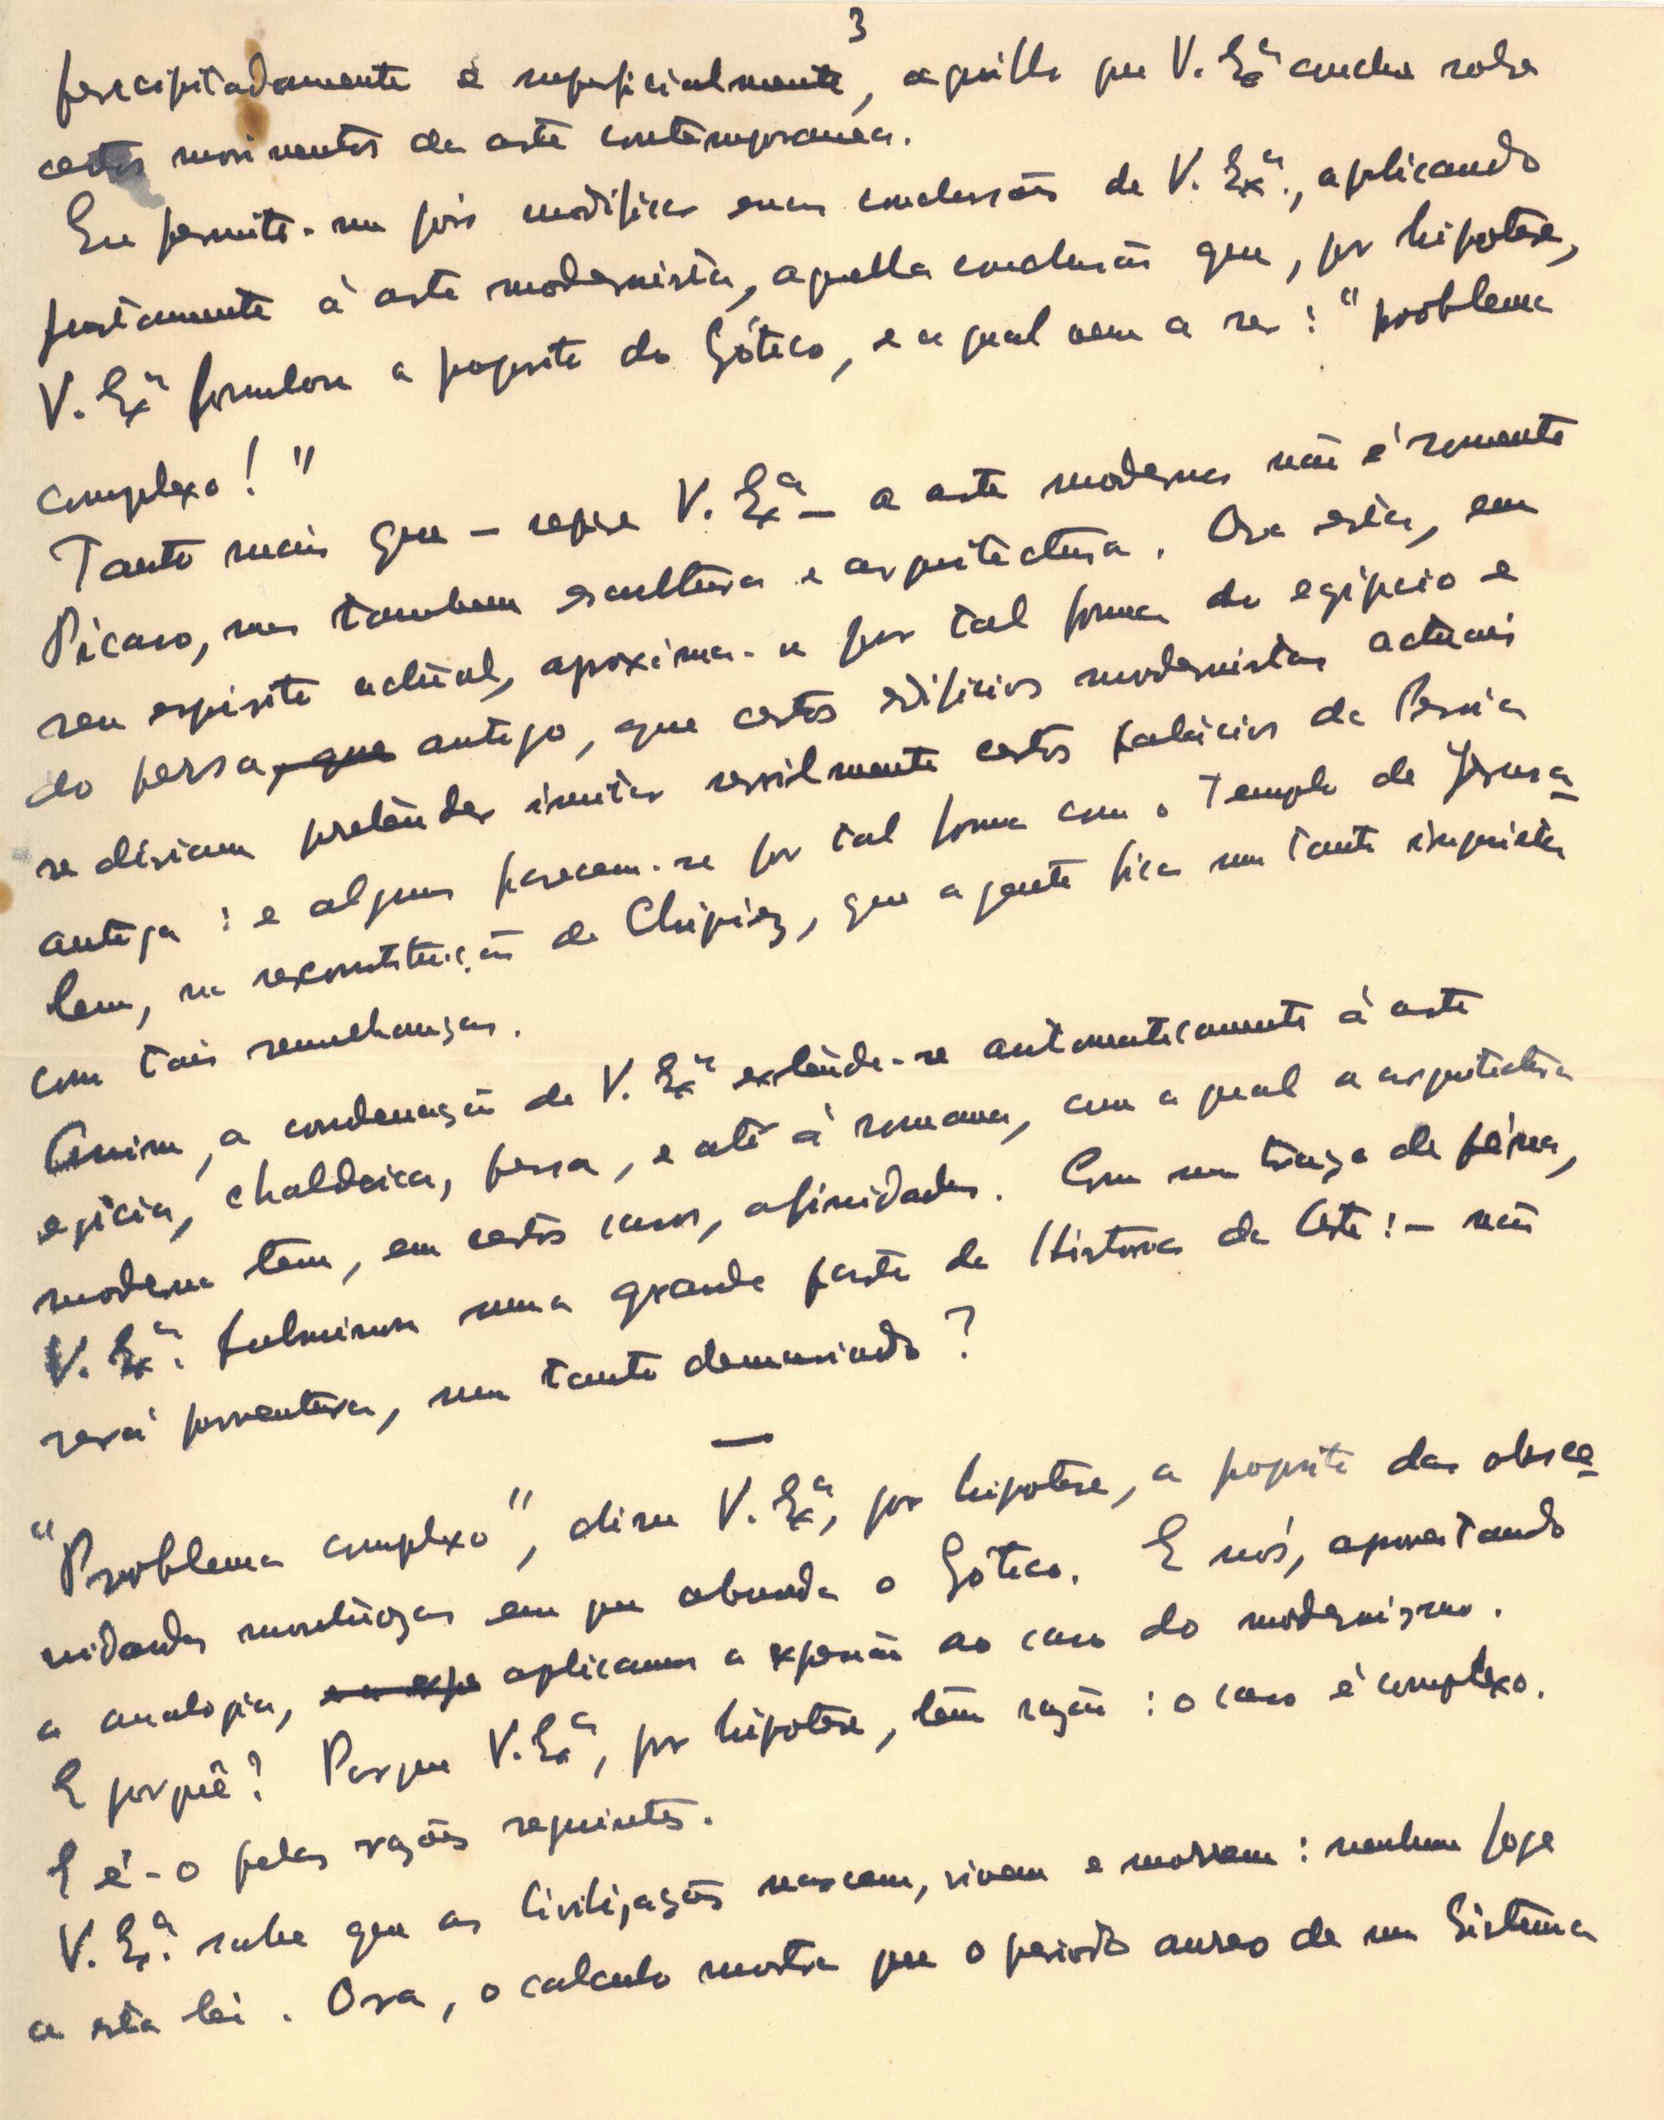 3
precipitadamente e superficialmente, aquillo que V. Exª conclue sobre
certos movimentos da arte contemporanea.
Eu permito-me pois modificar essa conclusão de V. Exª., aplicando
justamente à arte modernista, aquella conclusão que, por hipotese,
V. Exª formulou a proposito do Gótico, e a qual vem a ser: "problema
complexo!"
Tanto mais que – repare V. Exª – a arte moderna não é somente
Picasso, mas tambem escultura e arquitectura. Ora esta, em
seu espirito actual, aproxima-se por tal forma do egipcio e
do persa, que antigo, que certos edificios modernistas actuais
se diriam pretender imitar servilmente certos palácios da Persia
antiga: e alguns parecem-se por tal forma com o Templo de Jerusa
lem, na reconstituição de Chipiez, que a gente fica um tanto inquieta
com tais semelhanças.
Assim, a condenação de V. Exª extende-se automaticamente à arte
egicia, chaldaica, persa, e até à romana, com a qual a arquitectura
moderna tem, em certos casos, afinidades. Com um traço de pena,
V. Exª. fulminou uma grande parte da Historia da Arte: – não
será porventura, um tanto demasiado?
—
"Problema complexo", disse V. Exª, por hipotese, a proposito das obsce
nidades monstruosas em que abunda o Gótico. E nós, aproveitando
a analogia, e a expr aplicamos a expressão ao caso do modernismo.
E porquê? Porque V. Exª, por hipotese, têm razão: o caso é complexo.
E é-o pelas razões seguintes.
V. Exª. sabe que as Civilizações nascem, vivem e morrem: nenhum foge
a esta lei. Ora, o calculo mostra que o periodo aureo de um Sistema